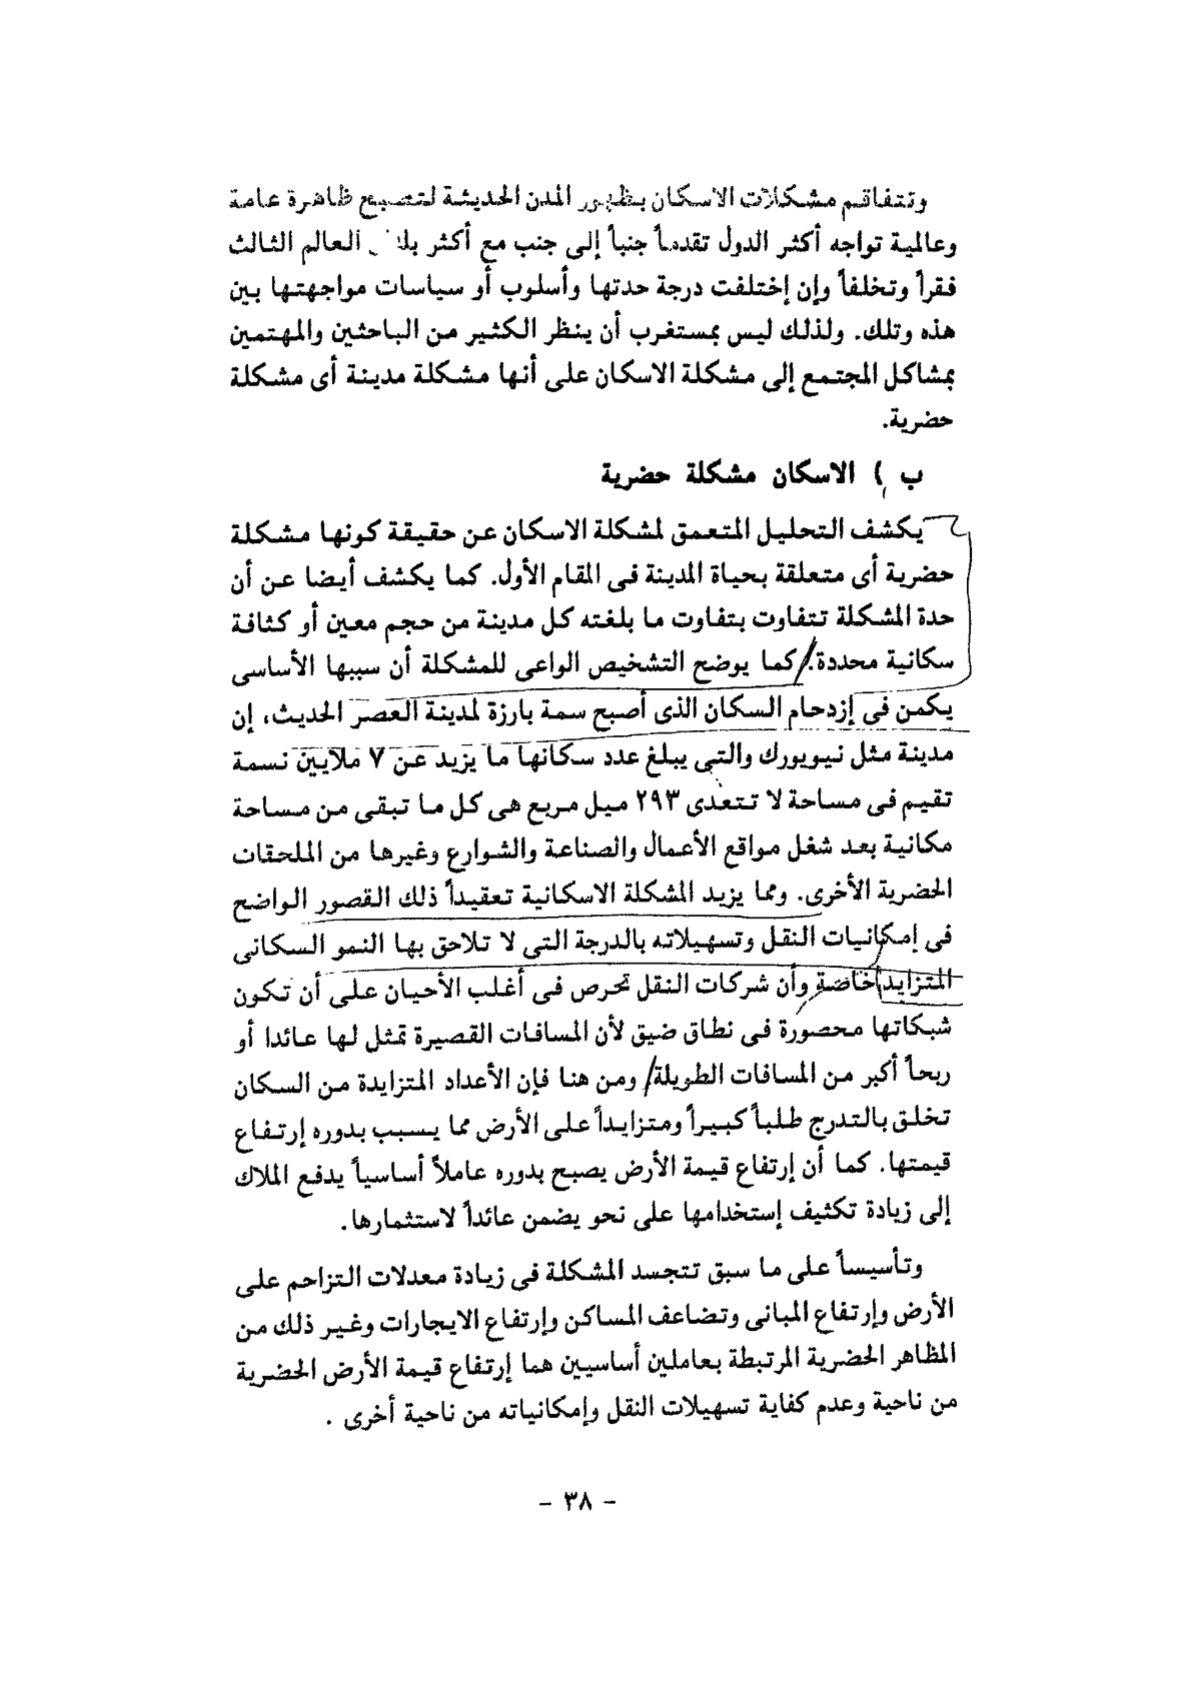 وتتفاقم مشكلات الاسكان بظهور المدن الحديثة لتصبح ظاهرة عامة
وعالمية تواجه أكثر الدول تقدماً جنباً إلى جنب مع أكثر العالم الثالث
فقراً وتخلفاً وإن إختلفت درجة حدتها وأسلوب أو سياسات مواجهتها بين
هذه وتلك. ولذلك ليس بمستغرب أن ينظر الكثير من الباحثين والمهتمين
بمشاكل المجتمع إلى مشكلة الاسكان على أنها مشكلة مدينة أى مشكلة
حضرية.
ب ) الاسكان مشكلة حضرية
يكشف التحليل المتعمق لمشكلة الاسكان عن حقيقة كونها مشكلة
حضرية أى متعلقة بحياة المدينة فى المقام الأول. كما يكشف أيضا عن أن
حدة المشكلة تتفاوت بتفاوت ما بلغته كل مدينة من حجم معين أو كثافة
سكانية محددة. كما يوضح التشخيص الواعى للمشكلة أن سببها الأساسى
يكمن فى إزدحام السكان الذى أصبح سمة بارزة لمدينة العصر الحديث، إن
مدينة مثل نيويورك والتى يبلغ عدد سكانها ما يزيد عن ٧ ملايين نسمة
تقيم فى مساحة لا تتعدى ٢٩٣ ميل مربع هى كل ما تبقى من مساحة
مكانية بعد شغل مواقع الأعمال والصناعة والشوارع وغيرها من الملحقات
الحضرية الأخرى. ومما يزيد المشكلة الاسكانية تعقيداً ذلك القصور الواضح
فى إمكانيات النقل وتسهيلاته بالدرجة التى لا تلاحق بها النمو السكانى
المتزايد خاصة وأن شركات النقل تحرص فى أغلب الأحيان على أن تكون
شبكاتها محصورة فى نطاق ضيق لأن المسافات القصيرة تمثل لها عائدا أو
ربحاً أكبر من المسافات الطويلة/ ومن هنا فإن الأعداد المتزايدة من السكان
تخلق بالتدرج طلباً كبيراً ومتزايداً على الأرض مما يسبب بدوره إرتفاع
قيمتها. كما أن إرتفاع قيمة الأرض يصبح بدوره عاملاً أساسياً يدفع الملاك
إلى زيادة تكثيف إستخدامها على نحو يضمن عائداً لاستثمارها.
وتأسيساً على ما سبق تتجسد المشكلة فى زيادة معدلات التزاحم على
الأرض وإرتفاع المبانى وتضاعف المساكن وإرتفاع الايجارات وغير ذلك من
المظاهر الحضرية المرتبطة بعاملين أساسيين هما إرتفاع قيمة الأرض الحضرية
من ناحية وعدم كفاية تسهيلات النقل وإمكانياته من ناحية أخرى .
- ٣٨ -